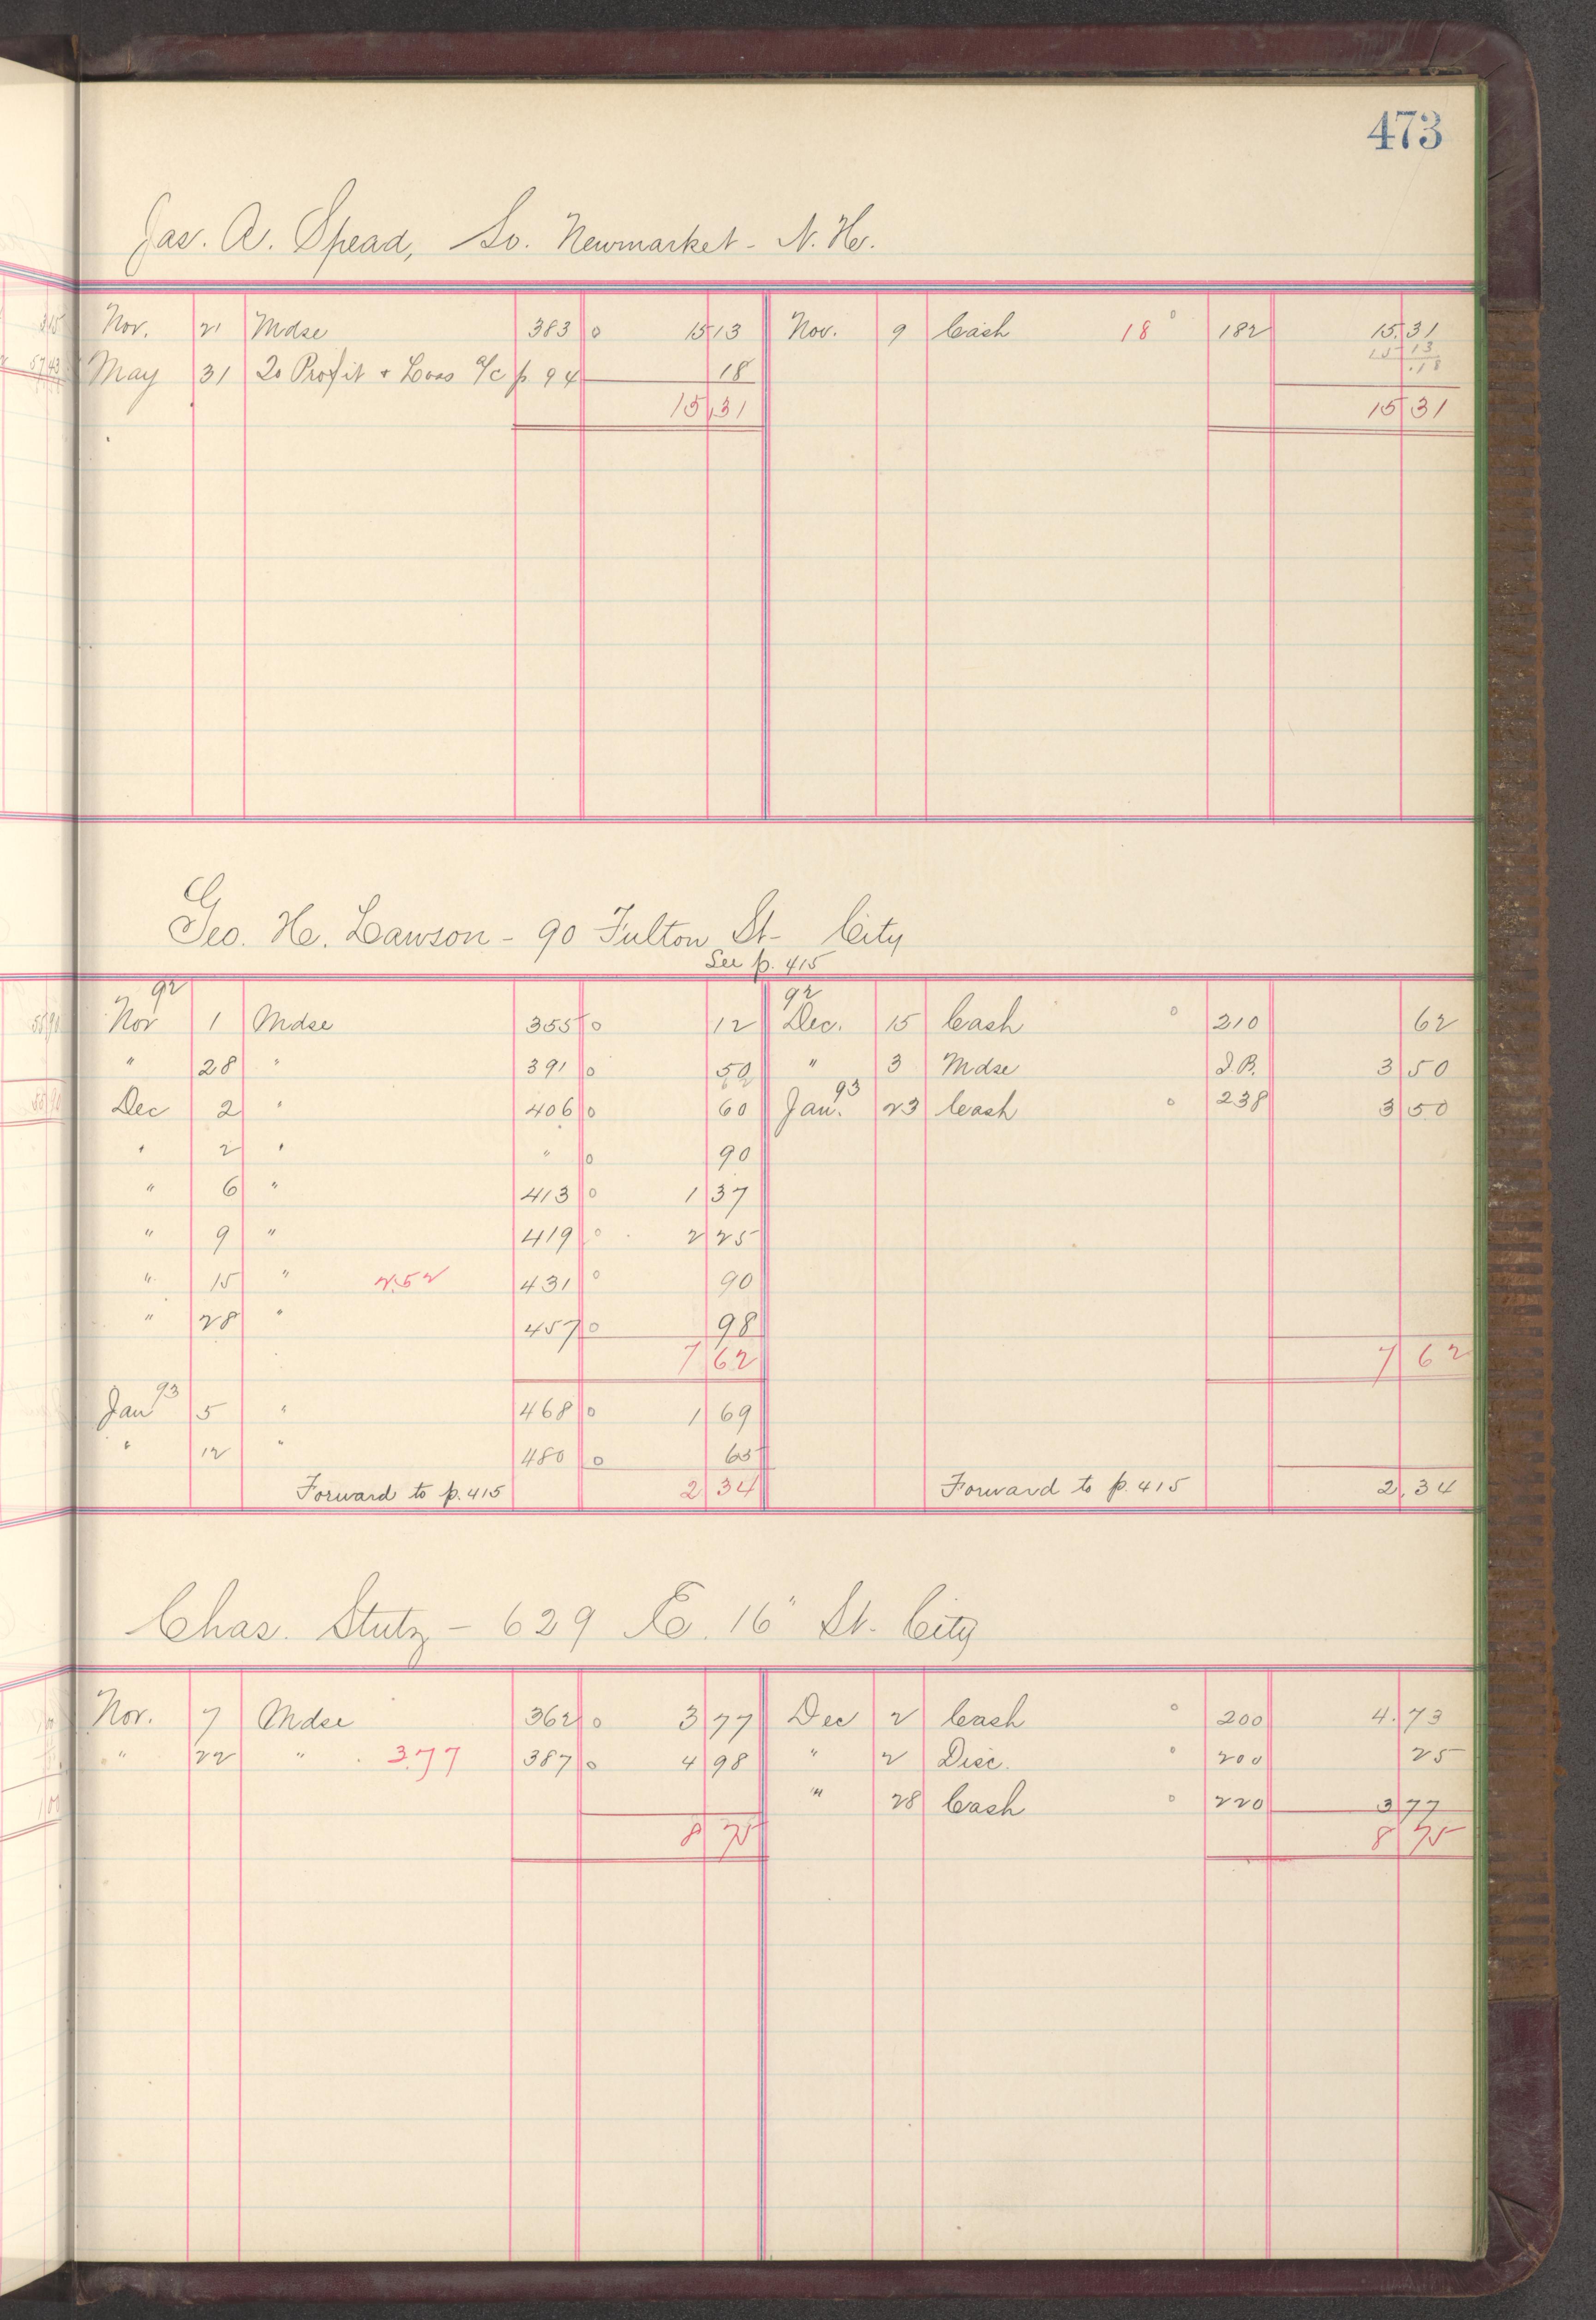 473
Jas. A. Spead, So. Newmarket - N. H.
Nov. 21 Mdse 383 0 15 13 Nov. 9 Cash 18 0 182 15.31
15 13
.18
May 31 To Profit & Loss a/c p 94 18
15.31 15 31
Geo. H. Lawson - 90 Fulton St - City
See p. 415
92 92
Nov 1 Mdse 355 0 12 Dec. 15 Cash 0 210 62
" 28 " 391 0 50 " 3 Mdse J.B. 3 50
62
Dec 2 " 406 0 60 Jan. 93 23 Cash 0 238 3 50
" 2 " " 0 90
" 6 " 413 0 1 37
" 9 " 419 0 2 25
" 15 " 2.52 431 0 90
" 28 " 457 0 98
7 62 7 62
Jan 93 5 " 468 0 1 69
" 12 " 480 0 65
Forward to p. 415 2 34 Forward to p. 415 2.34
Chas. Stutz - 629 E. 16" St. City
Nov. 7 Mdse 362 0 3 77 Dec 2 Cash 0 200 4.73
" 22 " 3.77 387 0 4 98 " 2 Disc. 0 200 25
" 28 Cash 0 220 3 77
8 75 8 75